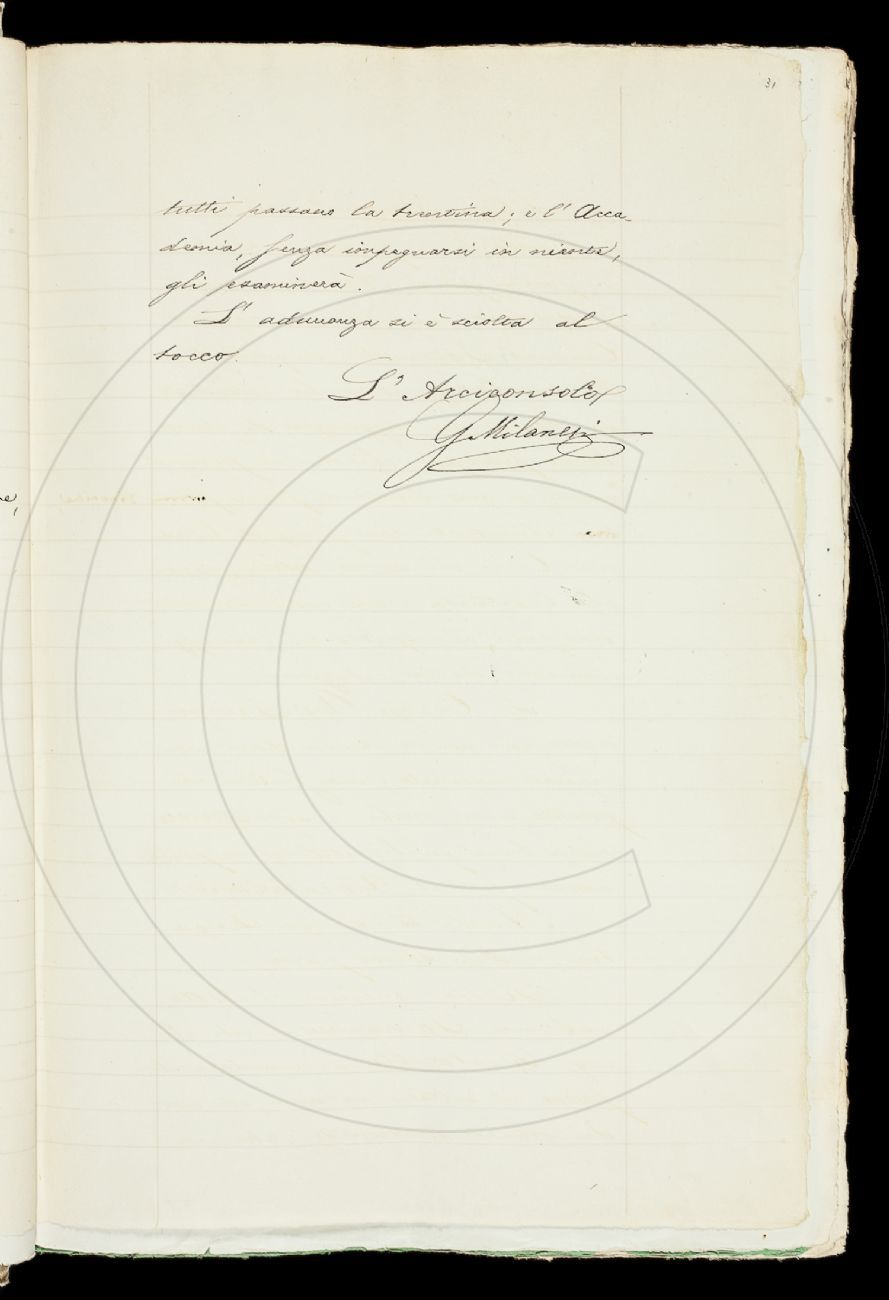 31
tutti passano la trentina; e l' Acca-
demia, senza impegnarsi in niente,
gli esaminerà.
L' adunanza si è sciolta al
tocco.
L' Arciconsolo
G Milanesi